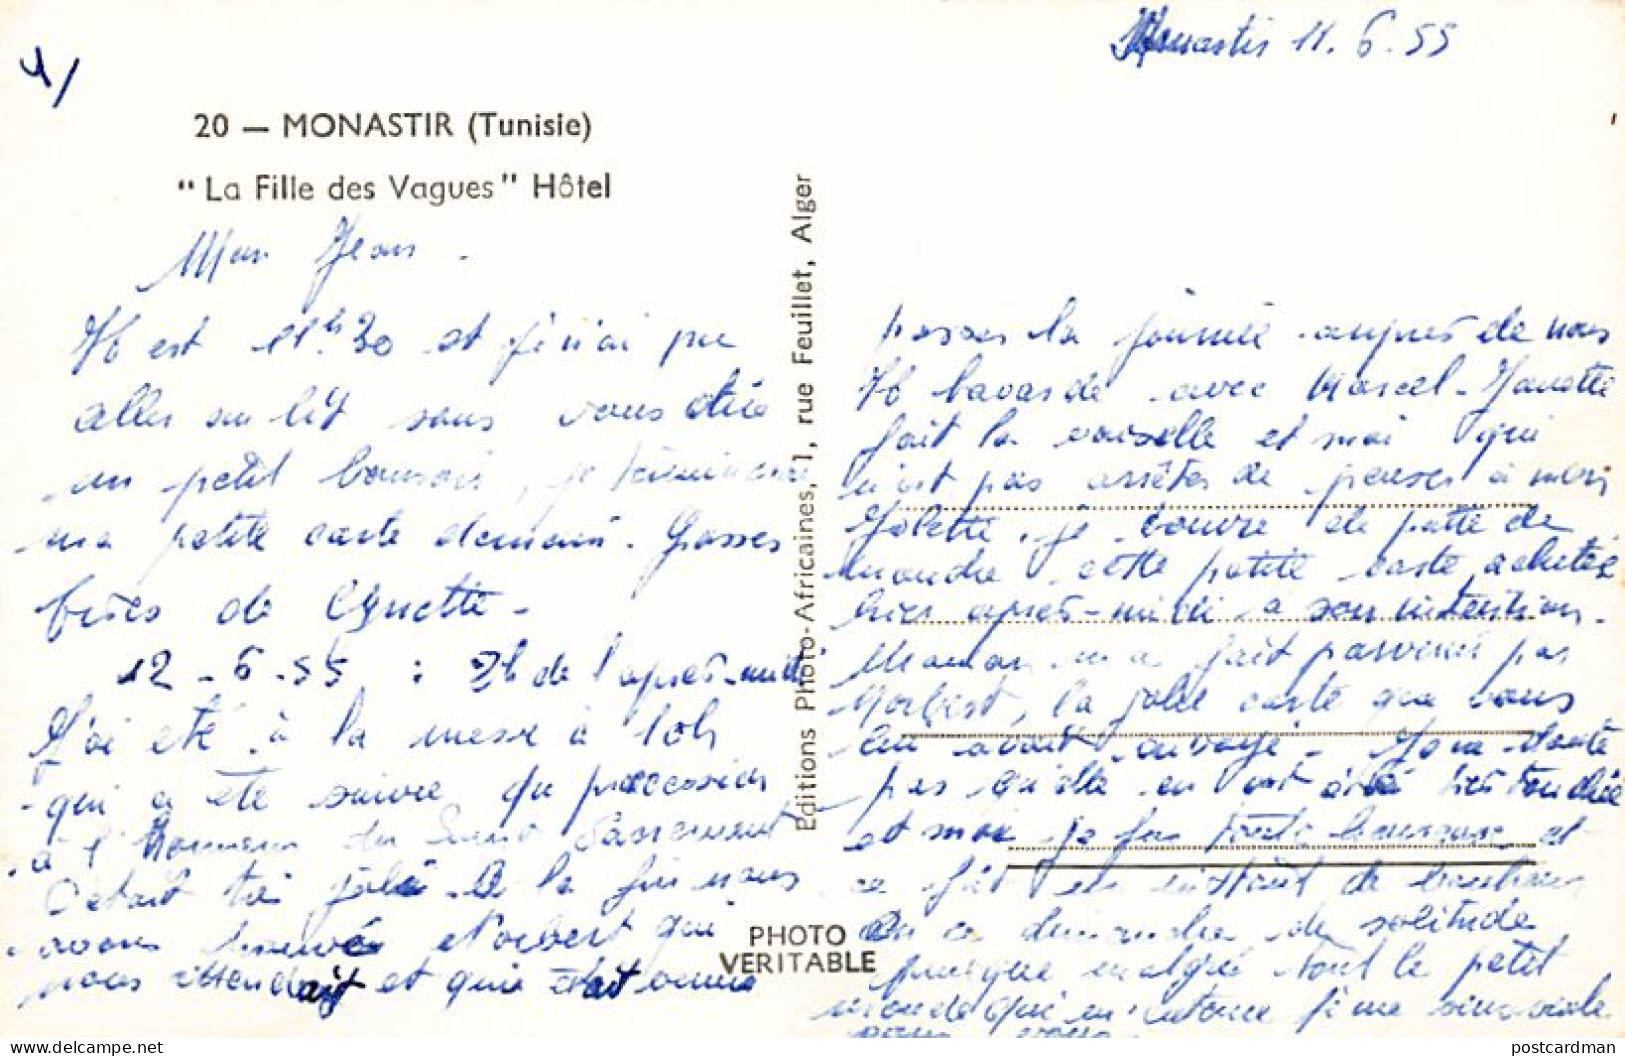 4/
Monastir 11.6.55
20 — MONASTIR (Tunisie)
"La Fille des Vagues" Hôtel
Mon Jean -
Il est 11h30 et je n'ai pu
aller au lit sans vous dire
un petit bonsoir, je terminerai
ma petite carte demain. Grosses
bises de Ginette -
12-6-55 : 2h de l'après-midi
J'ai été à la messe à 10h
qui a été suivie du procession
à l'honneur du Saint Sacrement
C'était très joli. A la fin nous
avons trouvé Norbert qui
nous attendait et qui était venu
Editions Photo-Africaines, 1, rue Feuillet, Alger
PHOTO
VERITABLE
passer la journée auprès de nous
Il bavarde avec Marcel - Janette
fait la vaisselle et moi qui
n'ait pas arrêter de penser à mon
je couvre de patte de
mouche cette petite carte achetée
hier après-midi a son intention.
Maman m'a fait parvenir par
Norbert, la jolie carte que vous
lui avait envoyé -
pas qu'elle en ait été très touchée
et moi je fus toute heureuse et
ce fût un instant de bonheur
dans ce dimanche de solitude
puisque malgré tout le petit
monde qui m'entoure je me sens seule
sans vous
postcardman